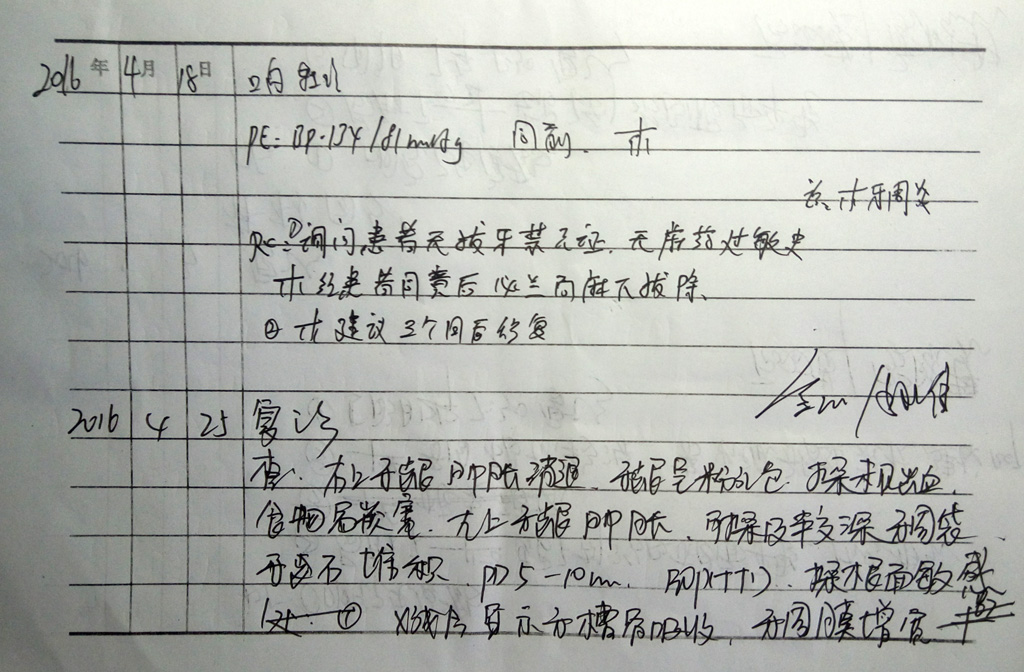 2016年 4月 18日
PE: BP:134/81mmHg 同前.
诊: 牙周炎
Rc: ①询问患者无拔牙禁忌证. 无麻药过敏史
经患者同意后 必兰局麻下拔除、
② 建议3个月后修复
2016 4 25 复诊
查: 右上牙龈肿胀消退. 牙龈呈粉红色 探未见出血.
食物屑嵌塞. 左上牙龈肿胀. 可探及较深牙周袋.
牙多石堆积. PD 5-10mm. 探根面敏感
① X线片显示牙槽骨吸收, 牙周膜增宽